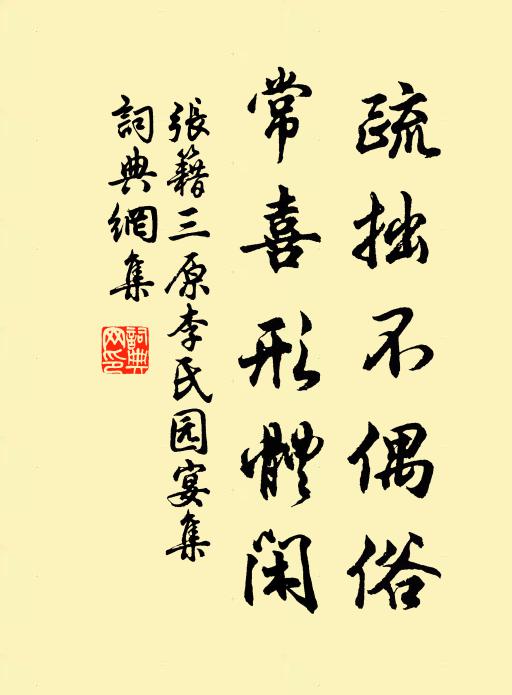 疏拙不偶俗
常喜形體闲
張籍三原李氏园宴集
詞典網集
詞典网印